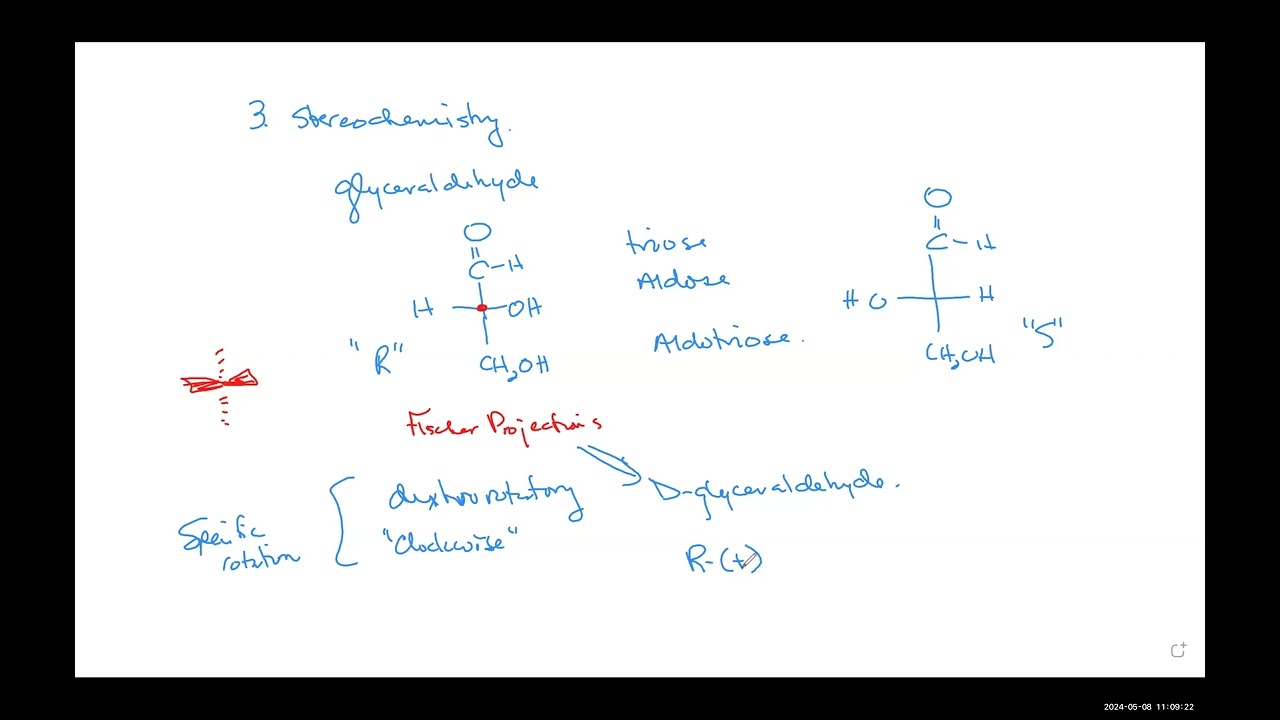 3. Stereochemistry.
glyceraldehyde
O
C-H
H OH
CH2OH
"R"
triose
Aldose
Aldotriose.
O
C-H
HO H
CH2OH
"S"
Fischer Projections
Specific rotation
dextrorotatory
"Clockwise"
D-glyceraldehyde.
R-(+)
2024-05-08 11:09:22